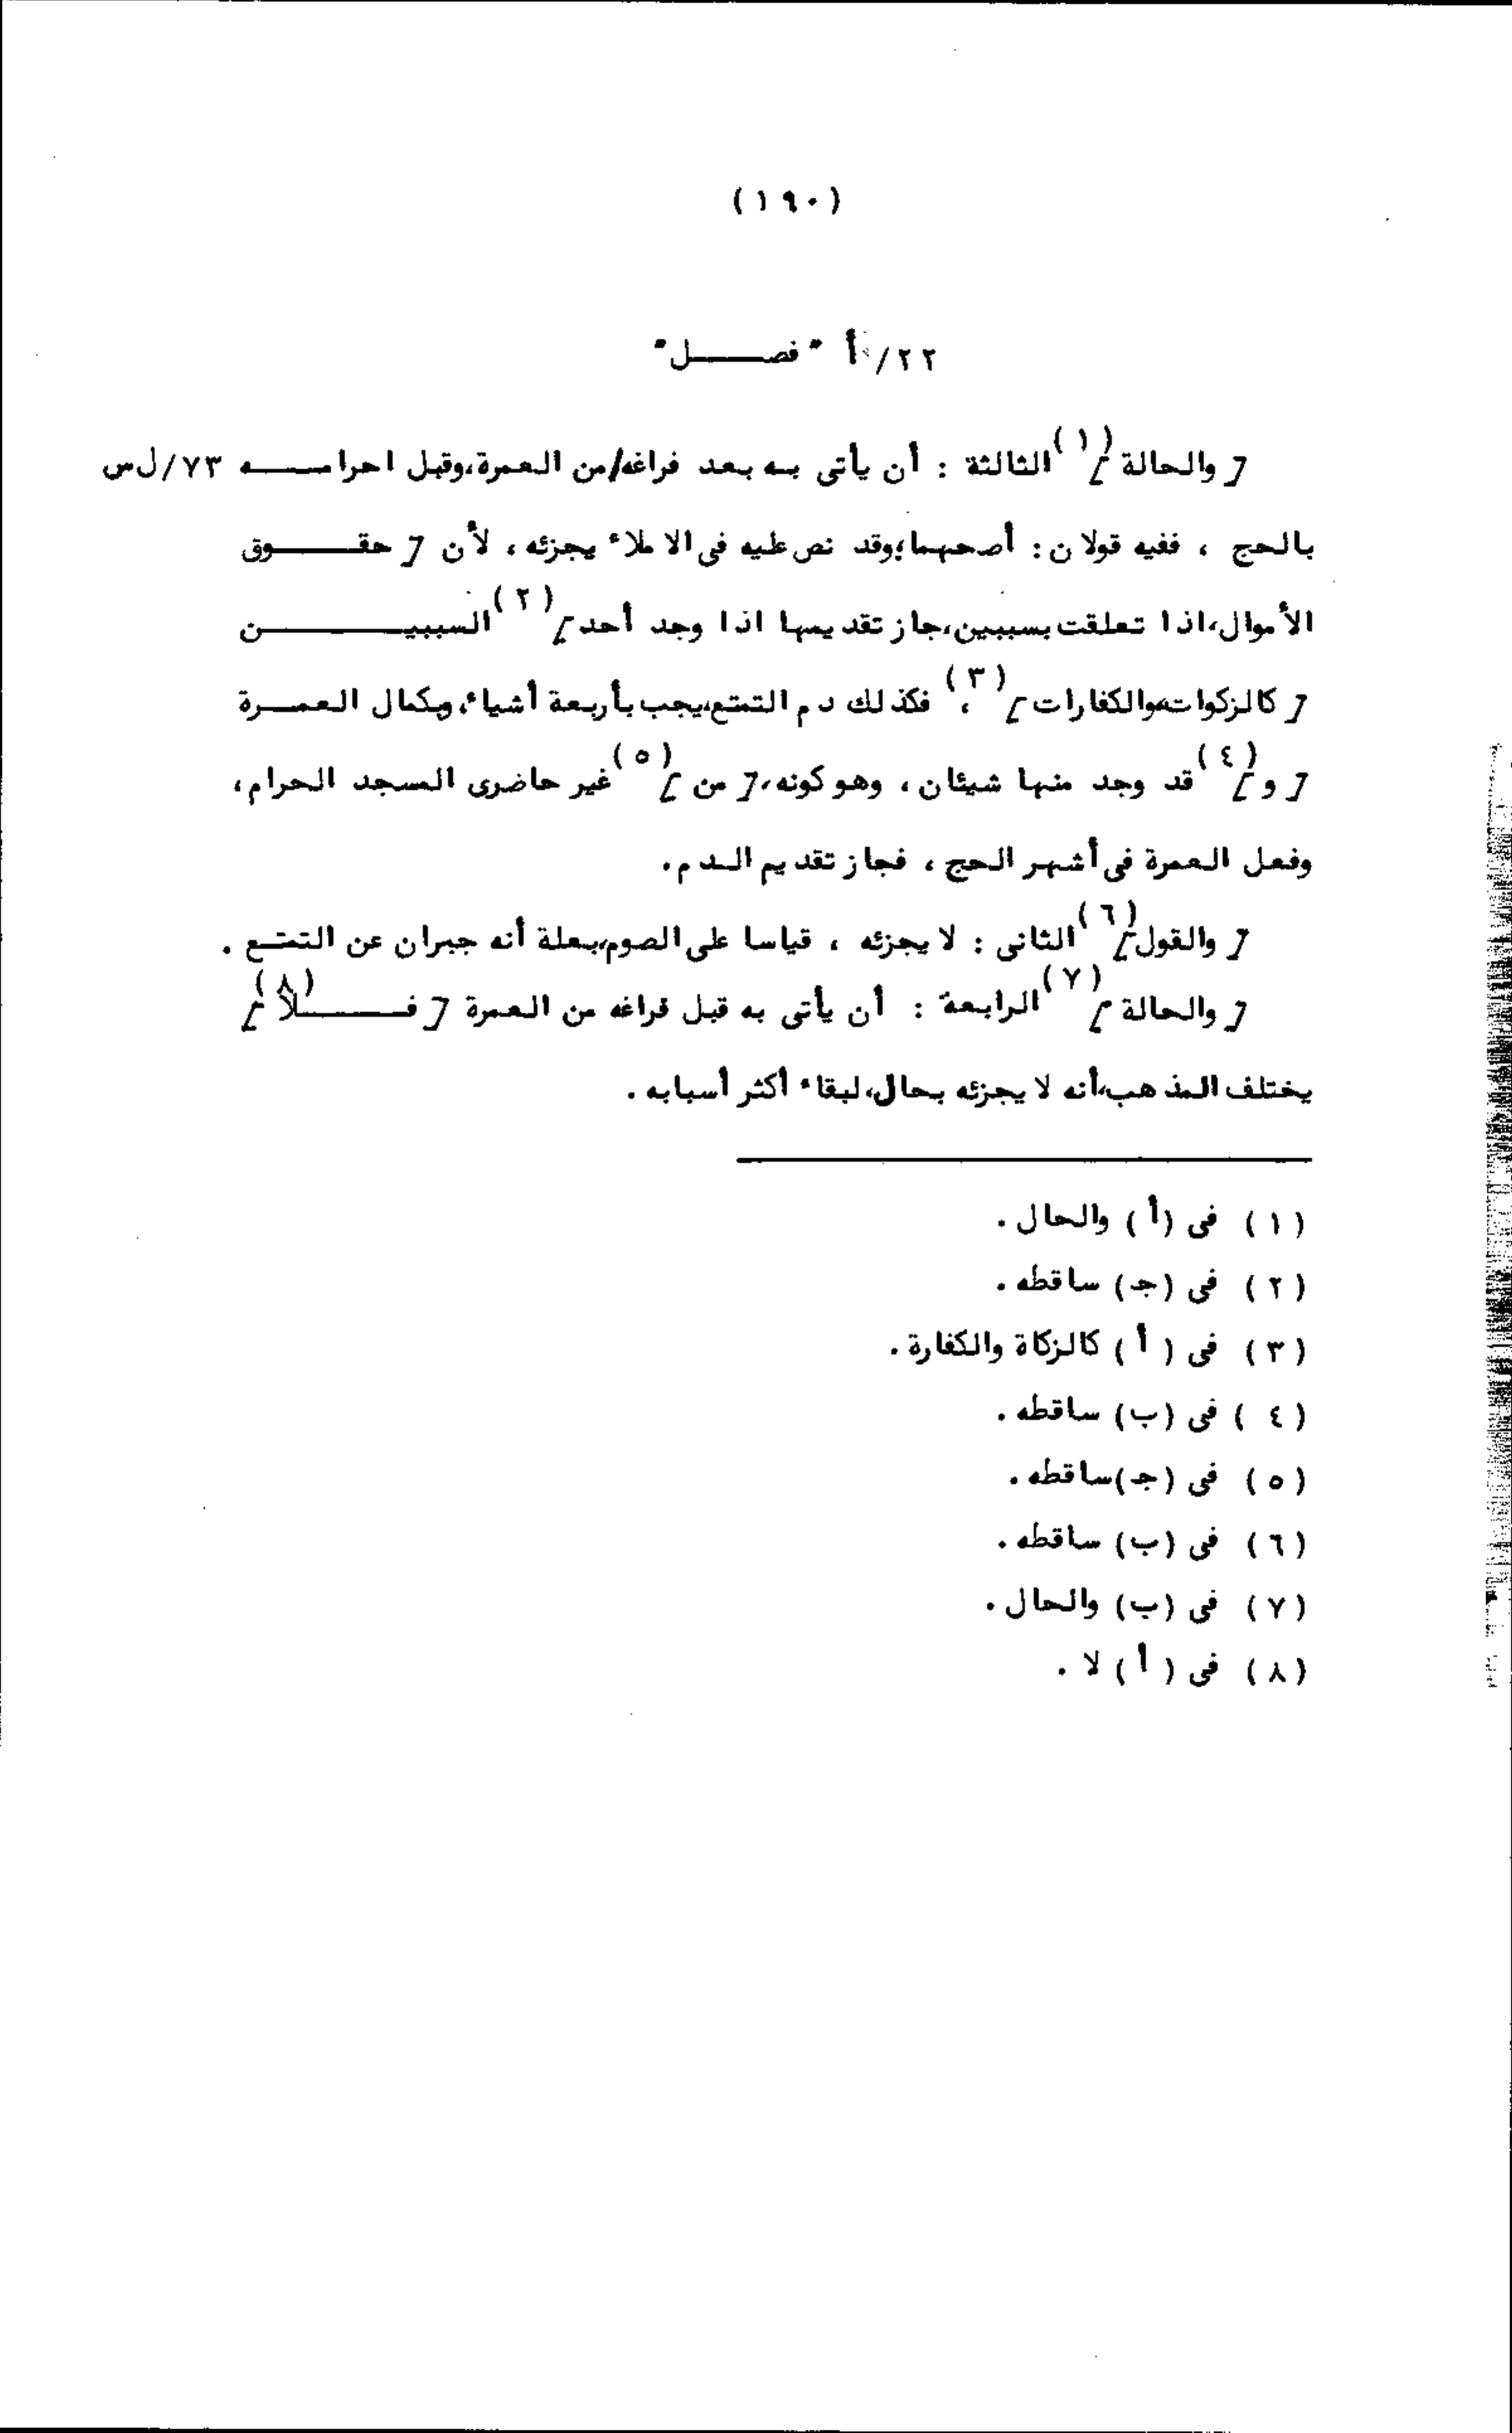 (١٩٠)
٢٢/أ "فصـــل"
[ والحالة ](١) الثالثة : أن يأتى به بعد فراغه/من العمرة،وقبل احرامـــه ٧٣/ل س
بالحج ، ففيه قولان: أصحهما؛وقد نص عليه فى الاملاء يجزئه ، لأن [ حقـــوق
الأموال،اذا تعلقت بسببين،جاز تقديمها اذا وجد أحد ](٢) السببيـــــن
[ كالزكوات،والكفارات ](٣)، فكذلك دم التمتع،يجب بأربعة أشياء،وبكمال العمـرة
[ و ](٤) قد وجد منها شيئان ، وهو كونه،[ من ](٥) غير حاضرى المسجد الحرام،
وفعل العمرة فى أشهر الحج ، فجاز تقديم الدم.
[ والقول ](٦) الثانى : لا يجزئه ، قياسا على الصوم،بعلة أنه جبران عن التمتـع .
[ والحالة ](٧) الرابعة : أن يأتى به قبل فراغه من العمرة [ فــــلا ](٨)
يختلف المذهب،أنه لا يجزئه بحال،لبقاء أكثر أسبابه .
(١) فى (أ) والحال .
(٢) فى (جـ) ساقطه .
(٣) فى (أ) كالزكاة والكفارة .
(٤) فى (ب) ساقطه .
(٥) فى (جـ)ساقطه .
(٦) فى (ب) ساقطه .
(٧) فى (ب) والحال .
(٨) فى (أ) لا .